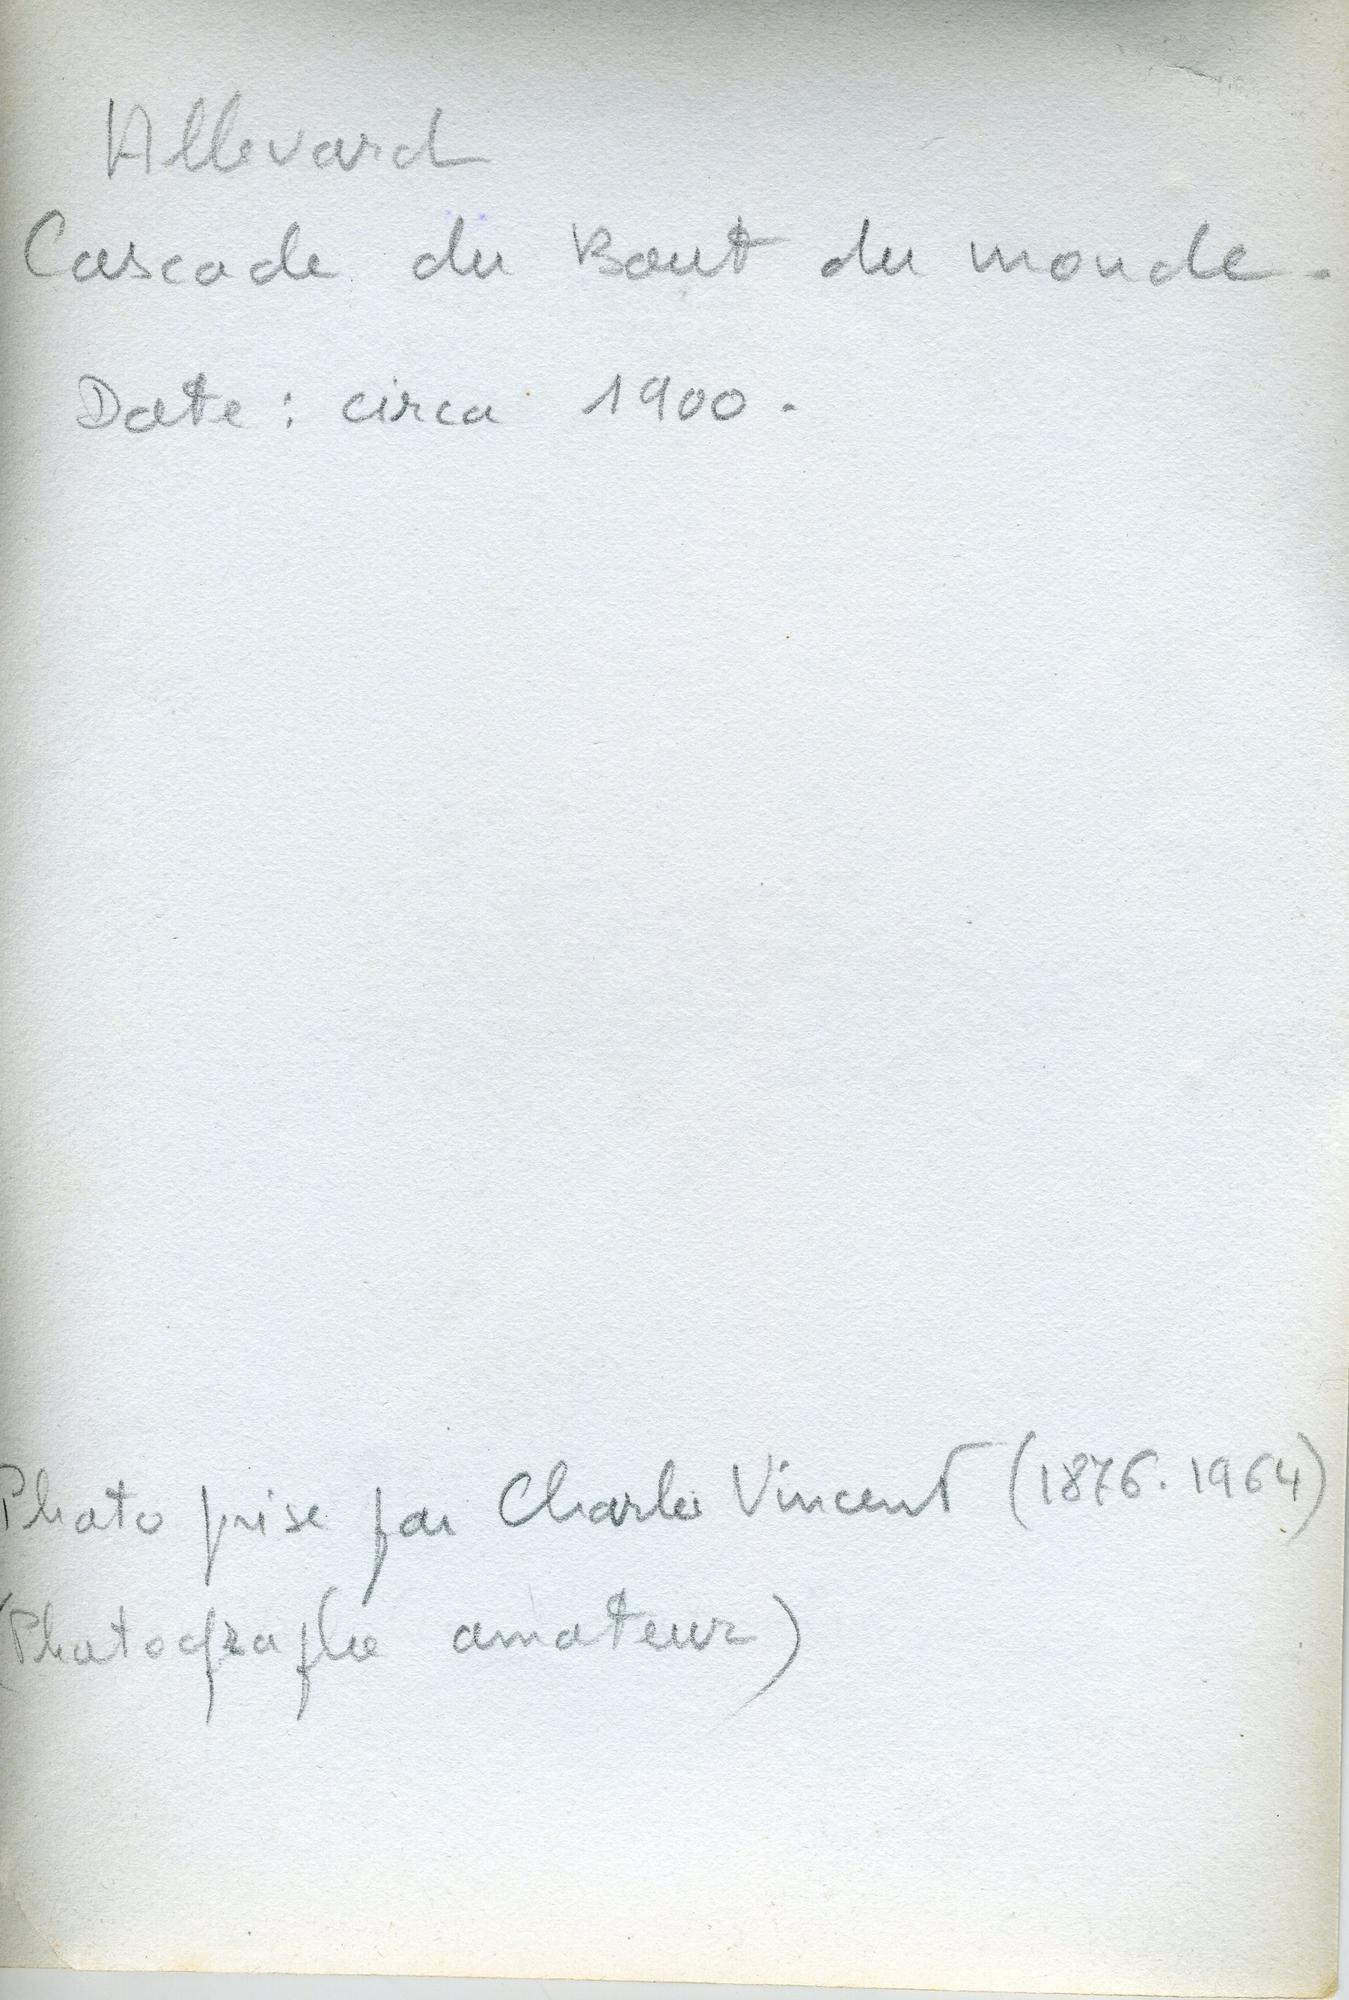 Allevard
Cascade du Bout du monde.
Date : circa 1900.
Photo prise par Charles Vincent (1876.1964)
(Photographe amateur)